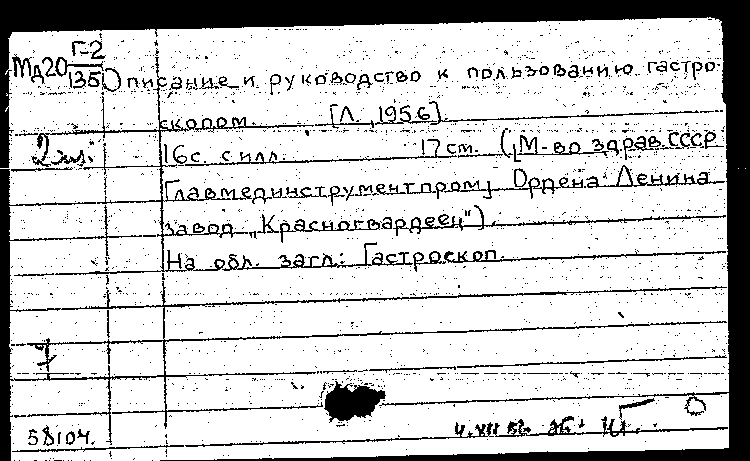 МД20 Г-2
135
Описание и руководство к пользованию гастро-
скопом. [Л., 1956].
2 экз.
16с. с илл. 17 см. (М-во здрав. СССР
Главмединструментпром, Ордена Ленина
завод „Красногвардеец").
На обл. загл.: Гастроскоп.
7
58104.
4.VII